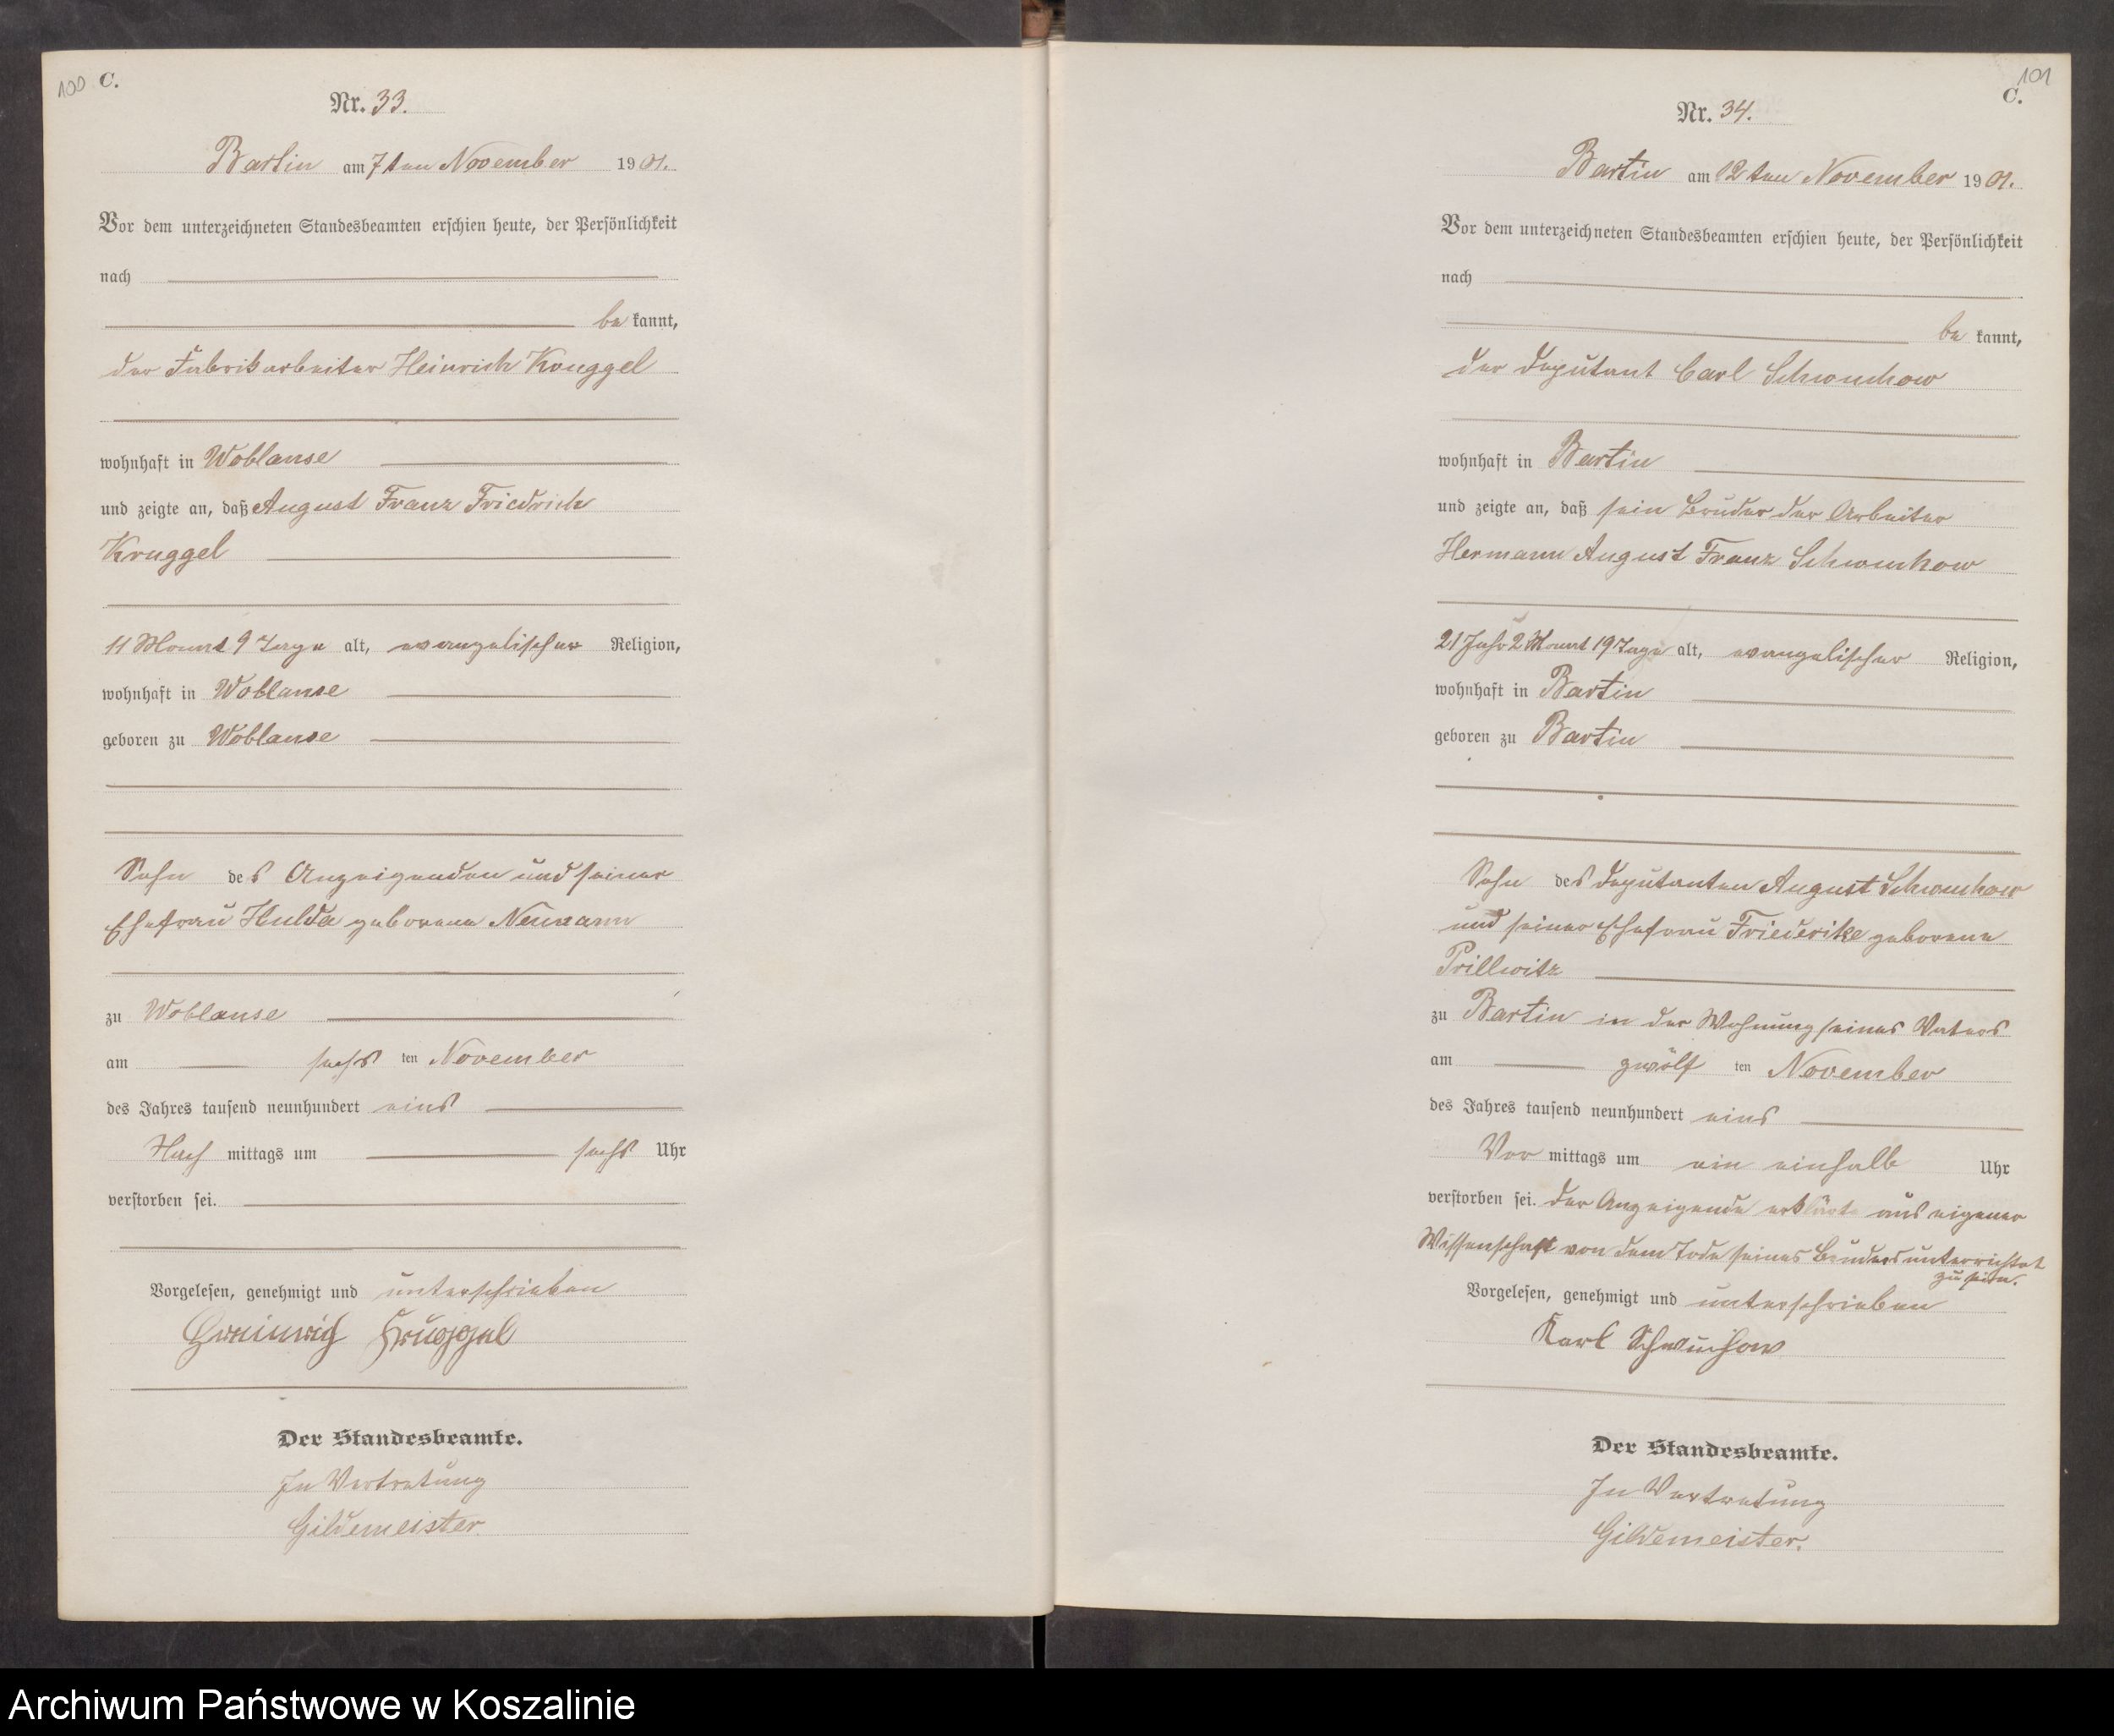 100 C.
Nr. 33.
Bartin am 7ten November 1901.
Vor dem unterzeichneten Standesbeamten erschien heute, der Persönlichkeit
nach
be kannt,
der Fabrikarbeiter Heinrich Kruggel
wohnhaft in Woblanse
und zeigte an, daß August Franz Friedrich
Kruggel
11 Monat 9 Tage alt, evangelischer Religion,
wohnhaft in Woblanse
geboren zu Woblanse
Sohn des Anzeigenden und seiner
Ehefrau Hulda geborene Neumann
zu Woblanse
am sechs ten November
des Jahres tausend neunhundert eins
Nach mittags um sechs Uhr
verstorben sei.
Vorgelesen, genehmigt und unterschrieben
Kruggel
Der Standesbeamte.
In Vertretung
Gildemeister
101
C.
Nr. 34.
Bartin am 12ten November 1901.
Vor dem unterzeichneten Standesbeamten erschien heute, der Persönlichkeit
nach
be kannt,
der Deputant Carl Schwuchow
wohnhaft in Bartin
und zeigte an, daß sein Bruder der Arbeiter
Hermann August Franz Schwuchow
21 Jahr 2 Monat 19 Tage alt, evangelischer Religion,
wohnhaft in Bartin
geboren zu Bartin
Sohn des Deputanten August Schwuchow
und seiner Ehefrau Friederike geborene
Prillwitz
zu Bartin in der Wohnung seines Vaters
am zwölf ten November
des Jahres tausend neunhundert eins
Vor mittags um ein einhalb Uhr
verstorben sei. Der Anzeigende erklärte aus eigener
Wissenschaft von dem Tode seines Bruders unterrichtet
zu sein.
Vorgelesen, genehmigt und unterschrieben
Karl Schwuchow
Der Standesbeamte.
In Vertretung
Gildemeister.
Archiwum Państwowe w Koszalinie